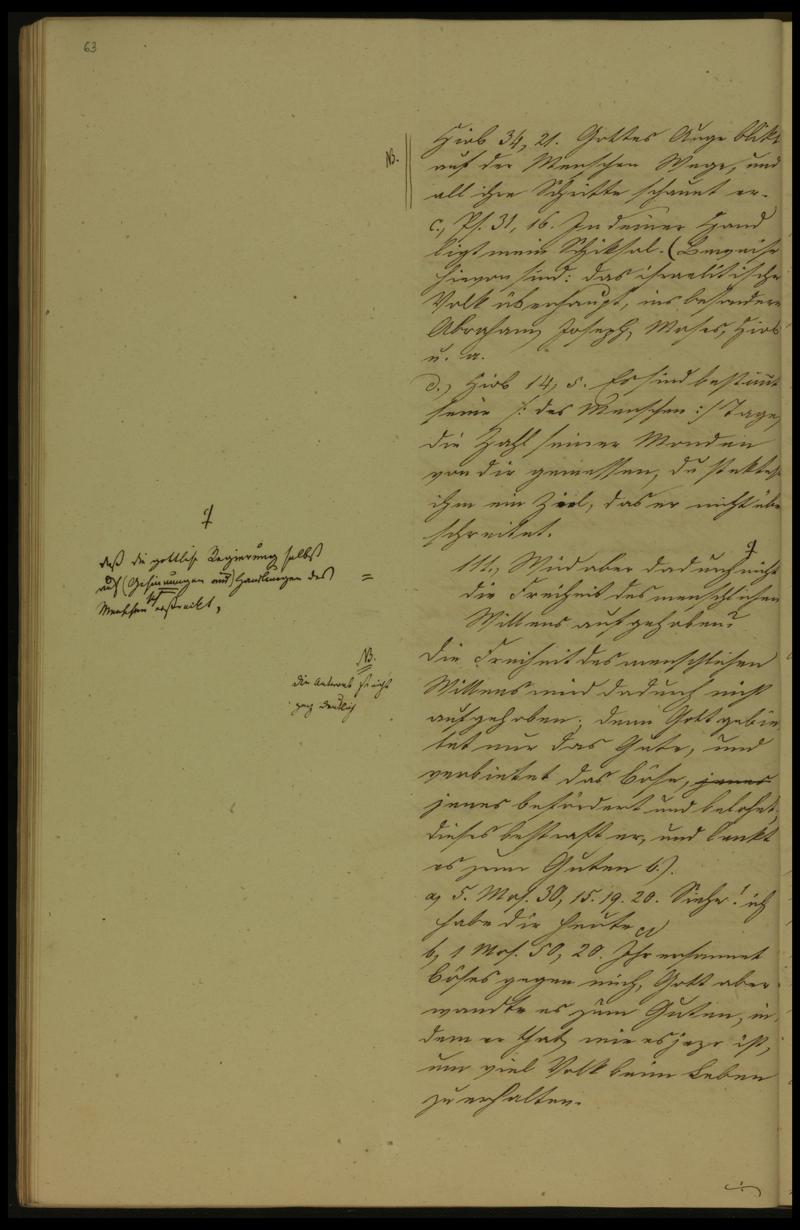 63
Hiob 34, 21. Gottes Auge blikt
auf der Menschen Wege, und
all ihre Schritte schauet er.
NB.
c., Ps. 31, 16. In deiner Hand
ligt mein Schiksal. (Beweise
hievon sind: das israelitische
Volk überhaupt, ins besondere
Abraham, Joseph, Moses, Hiob
u. a.
d., Hiob 14, 5. Es sind bestimt
seine /: des Menschen :/ Tage,
die Zahl seiner Monden
von dir gemessen, du stektest
ihm ein Ziel, das er nicht übe
schreitet.
111., Wird aber dadurch nicht
die Freiheit des menschlichen
Willens aufgehoben?
daß die göttliche Regierung selbst
auf (Gesinnungen und) Handlungen des =
Menschen sich erstreckt,
Die Freiheit des menschlichen
Willens wird dadurch nicht
aufgehoben; denn Gott gebie
tet nur das Gute, und
verbietet das Böse, jenes
jenes befördert und belohnt,
dieses bestraft er, und lenkt
es zum Guten b.).
NB.
Die Antwort ist nicht
ganz deutlich
a, 5. Mos. 30, 15. 19. 20. Siehe! ich
habe dir heute
b, 1 Mos. 50, 20. Ihr ersannet
Böses gegen mich, Gott aber
wandte es zum Guten, in
dem er that, wie es jezt ist,
um viel Volk beim Leben
zu erhalten.